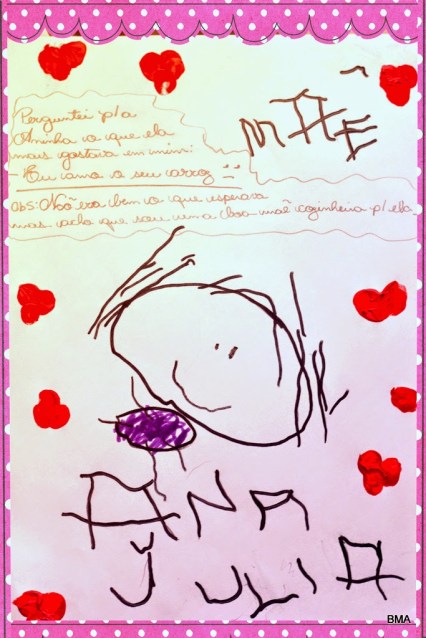 MÃE
Perguntei p/a
Aninha o que ela
mais gostava em mim:
- Eu amo o seu arroz
Obs: Não era bem o que esperava
mas acho que sou uma boa mãe cozinheira p/ ela.
ANA
JULIA
BMA